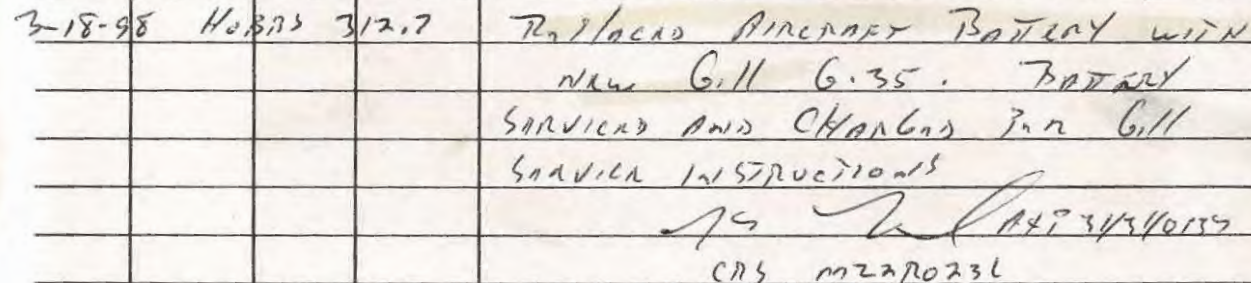 3-18-98 HOBBS 312.7 REPLACED AIRCRAFT BATTERY WITH
NEW Gill G-35. BATTERY
SERVICED AND CHARGED PER Gill
SERVICE INSTRUCTIONS
A&P
CRS MZ2R023L